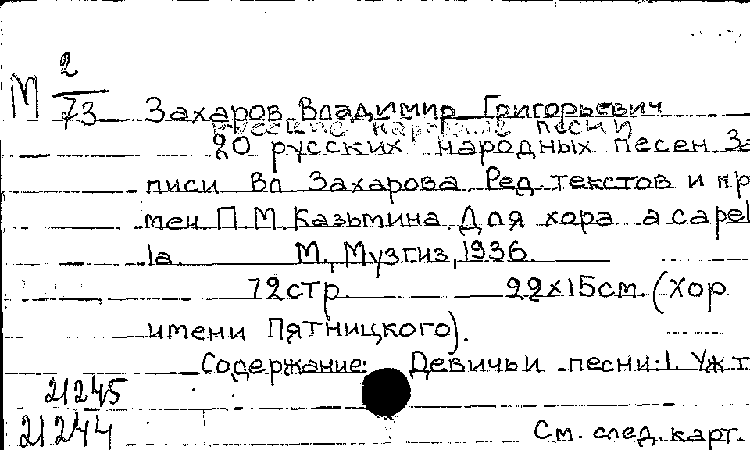 М 2/73
Захаров Владимир Григорьевич
Русские народные песни
20 русских народных песен За
писи Вл Захарова Ред. текстов и пр
мен П М Казьмина Для хора a capel
la М., Музгиз, 1936.
72 стр. 22х15см. (Хор
имени Пятницкого).
Содержание: Девичьи песни: 1. Уж т
21245
21244
См. след. карт.